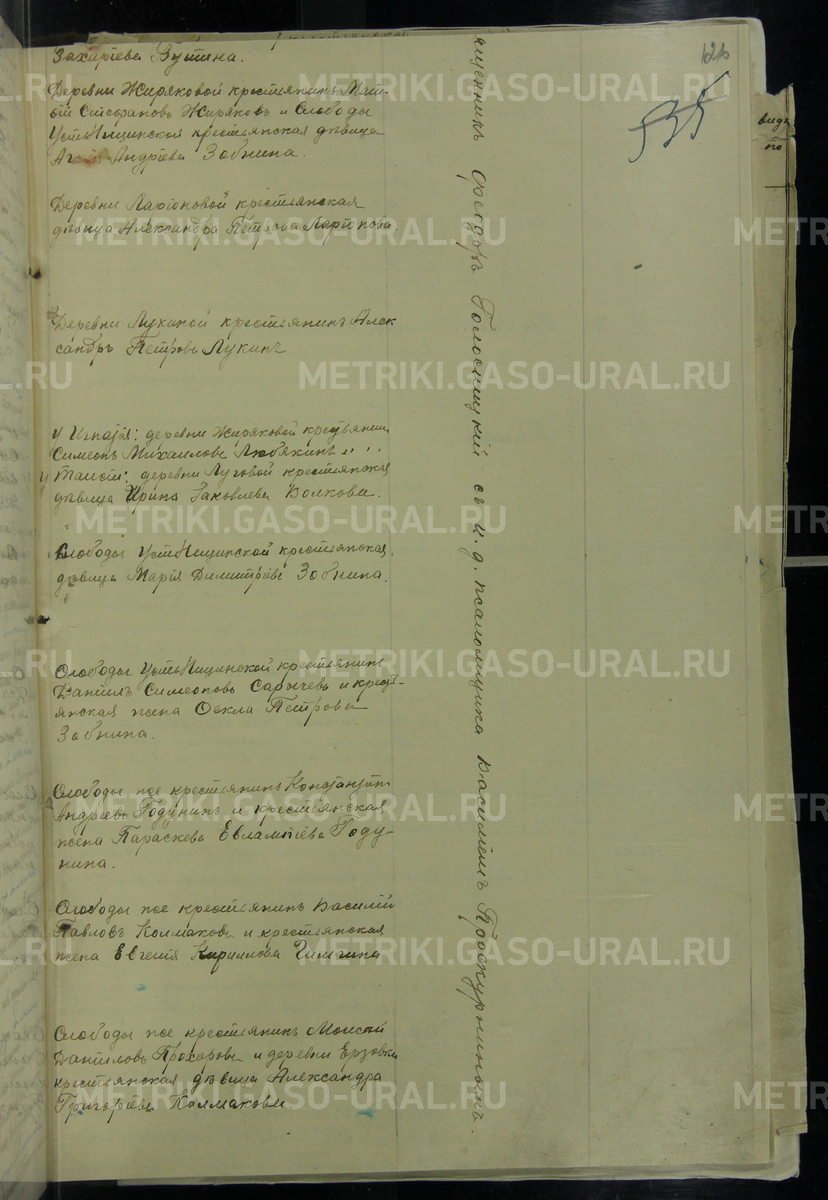 Захарiева Зутина.
Деревни Жиряковой крестьянинъ Мат-
ѳiй Стефановъ Жиряковъ и Слободы
Усть Ницинской крестьянская дѣвица
Андрiева Зобнина.
Деревни Ларiоновой крестьянская
дѣвица Александра Петрова Ларiонова.
Деревни Лукиной крестьянинъ Алек
сандръ Петровъ Лукинъ
У Игнатiя: деревни Жиряковой крестьянин
Симеонъ Михаиловъ Любякинъ
у Таисiи: деревни Луговой крестьянская
дѣвица Ирина Iаковлева Волкова.
Слободы Усть Ницинской крестьянская
дѣвица Марiя Димитрiева Зобнина.
Слободы Усть Ницинской крестьянинъ
Данiилъ Симеоновъ Сарычевъ и крест-
янская жена Ѳекла Петрова
Зобнина.
Слободы же крестьянинъ Константинъ
Андреевъ Годунинъ и крестьянская
жена Параскева Евлампiева Году-
нина.
Слободы же крестьянинъ Василiй
Павловъ Колмаковъ и крестьянская
жена Евгенiя Кириллова Чимгина
Слободы же крестьянинъ Моисей
Данiиловъ Прохоровъ и деревни Ерзовки
крестьянская дѣвица Александра
Григорiева Колмакова.
ященникъ Ѳеодоръ Голосницкiй съ и. д. псаломщика Василiемъ Проскурнинымъ.
126
535
METRIKI.GASO-URAL.RU